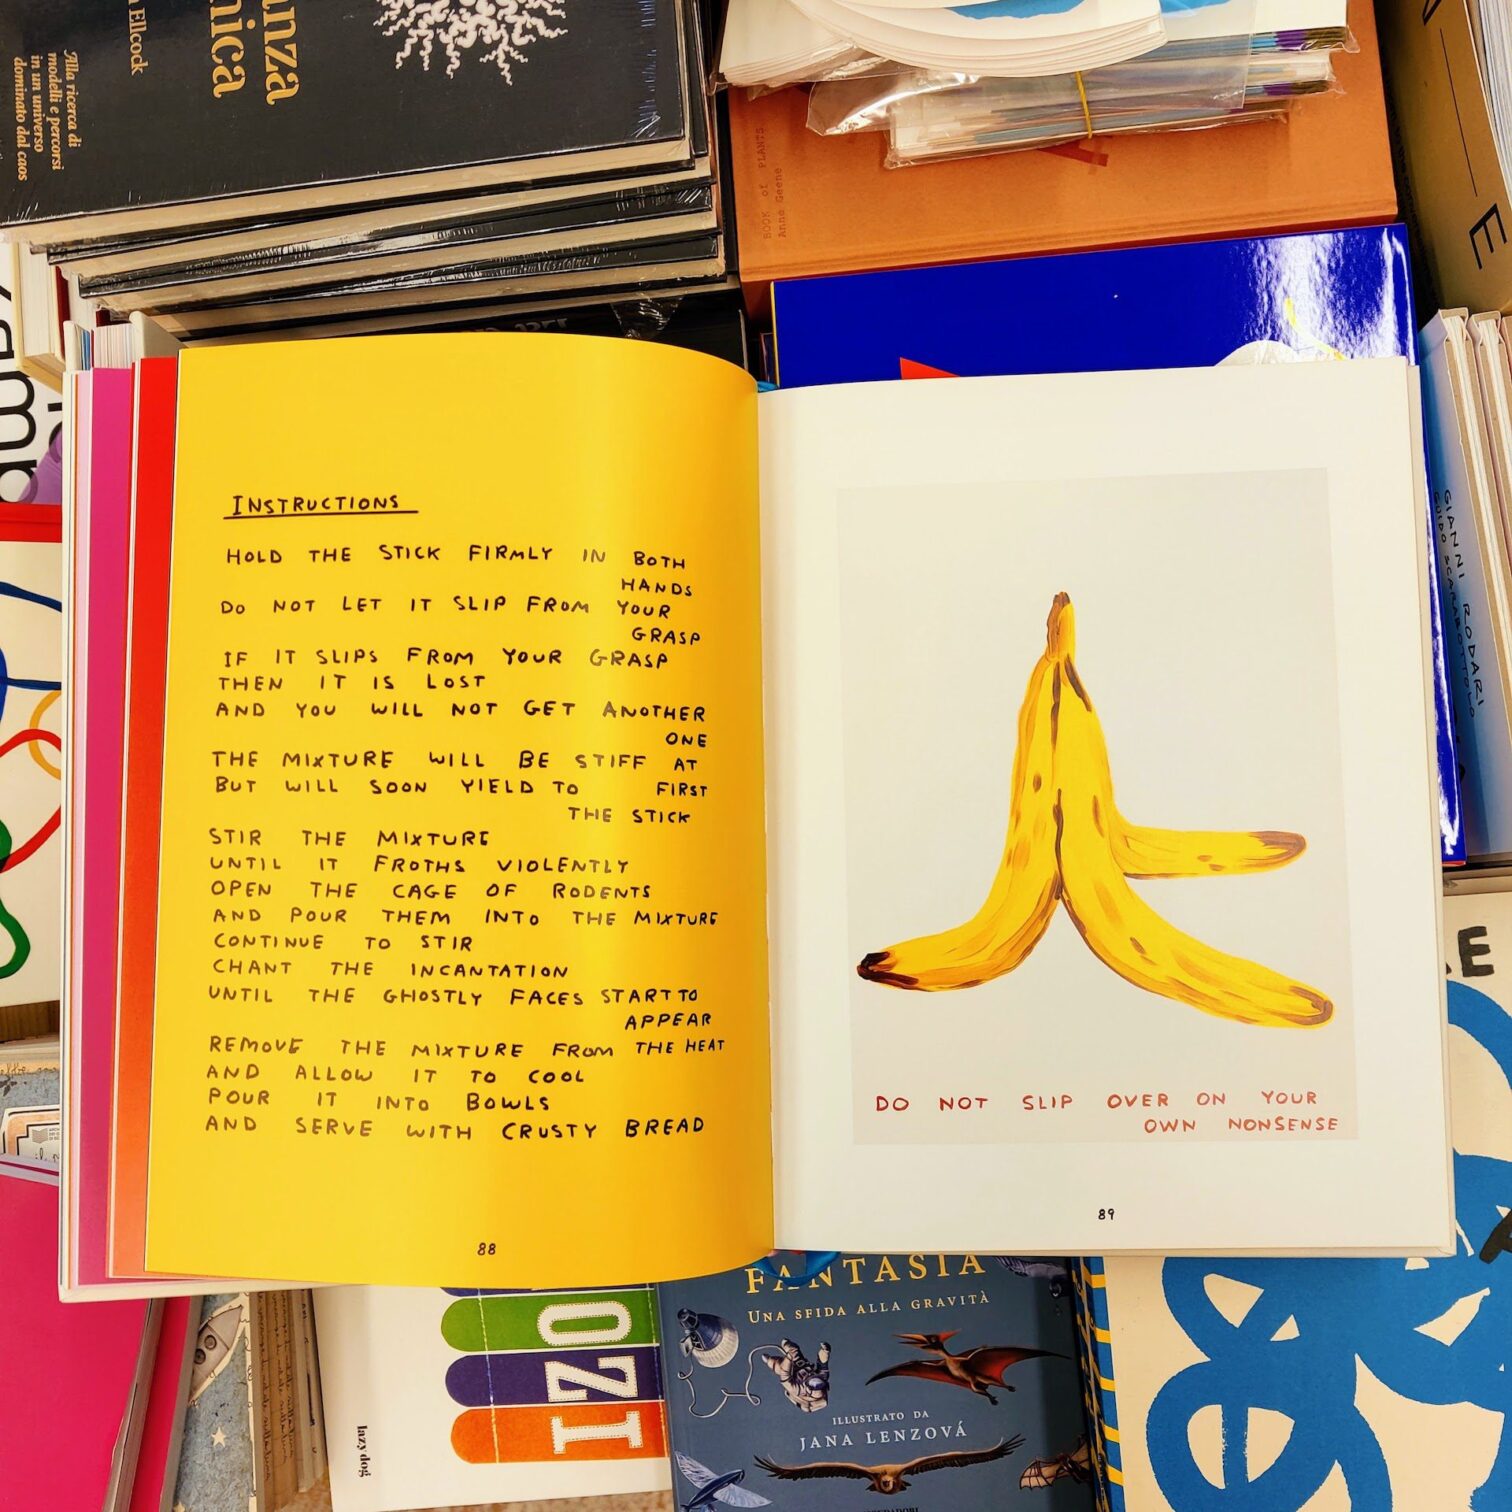 anza
nica
Ellcock
Alla ricerca di
modelli e percorsi
in un universo
dominato dal caos
BOOK of PLANTS
Anne Geene
E
INSTRUCTIONS
HOLD THE STICK FIRMLY IN BOTH
HANDS
DO NOT LET IT SLIP FROM YOUR
GRASP
IF IT SLIPS FROM YOUR GRASP
THEN IT IS LOST
AND YOU WILL NOT GET ANOTHER
ONE
THE MIXTURE WILL BE STIFF AT
BUT WILL SOON YIELD TO FIRST
THE STICK
STIR THE MIXTURE
UNTIL IT FROTHS VIOLENTLY
OPEN THE CAGE OF RODENTS
AND POUR THEM INTO THE MIXTURE
CONTINUE TO STIR
CHANT THE INCANTATION
UNTIL THE GHOSTLY FACES START TO
APPEAR
REMOVE THE MIXTURE FROM THE HEAT
AND ALLOW IT TO COOL
POUR IT INTO BOWLS
AND SERVE WITH CRUSTY BREAD
88
DO NOT SLIP OVER ON YOUR
OWN NONSENSE
89
GIANNI RODARI
GUIDO SCARABOTTOLO
FANTASIA
UNA SFIDA ALLA GRAVITÀ
ILLUSTRATO DA
JANA LENZOVÁ
IZO
lazy dog